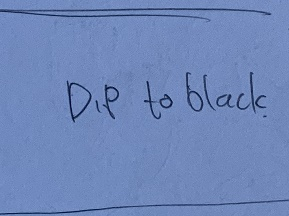 Dip to black.